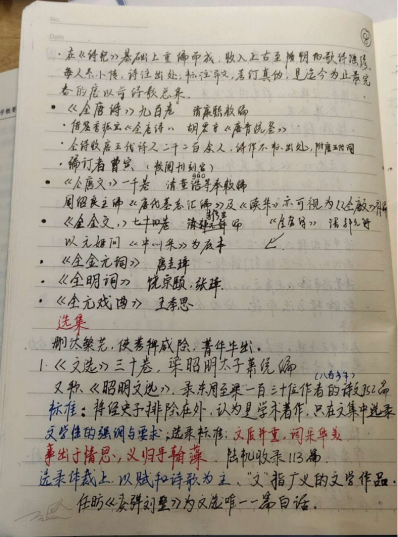 No.
Date
·在《诗纪》基础上重编而成,收入上古至隋朝的歌诗谣谚,
每人系小传,诗注出处,标注异文,考订真伪,是迄今为止最完
备的唐以前诗歌总集。
·《全唐诗》九百卷 清康熙敕编
·借鉴季振宜《全唐诗》 胡震亨《唐音统签》
·全诗收唐五代诗人二千二百余人,诗作不标出处,
·编订者曹寅
·《全唐文》一千卷 清董诰等奉敕编
周绍良主编《唐代墓志汇编》及《续集》亦可视为《全唐文》
·《全金文》,七十四卷 清
以元好问《中州集》为底本
·《全金元词》 唐圭璋
·《全明词》 饶宗颐,张璋
·《全元戏曲》 王季思
选集
删汰繁芜,使莠稗咸除,菁华毕出。
1.《文选》三十卷,梁昭明太子萧统编
又称《昭明文选》,录东周至梁一百三十位作者的诗文
标准:将经史子排除在外,认为是学术著作,只在文集中选录
文学性的强调与要求;选录标准:文质并重,词采华美
事出于沉思,义归乎翰藻 陆机收录113篇
选录体裁上,以赋和诗歌为主,"文"指广义的文学作品。
任昉《奏弹刘整》为文选唯一一篇白话。